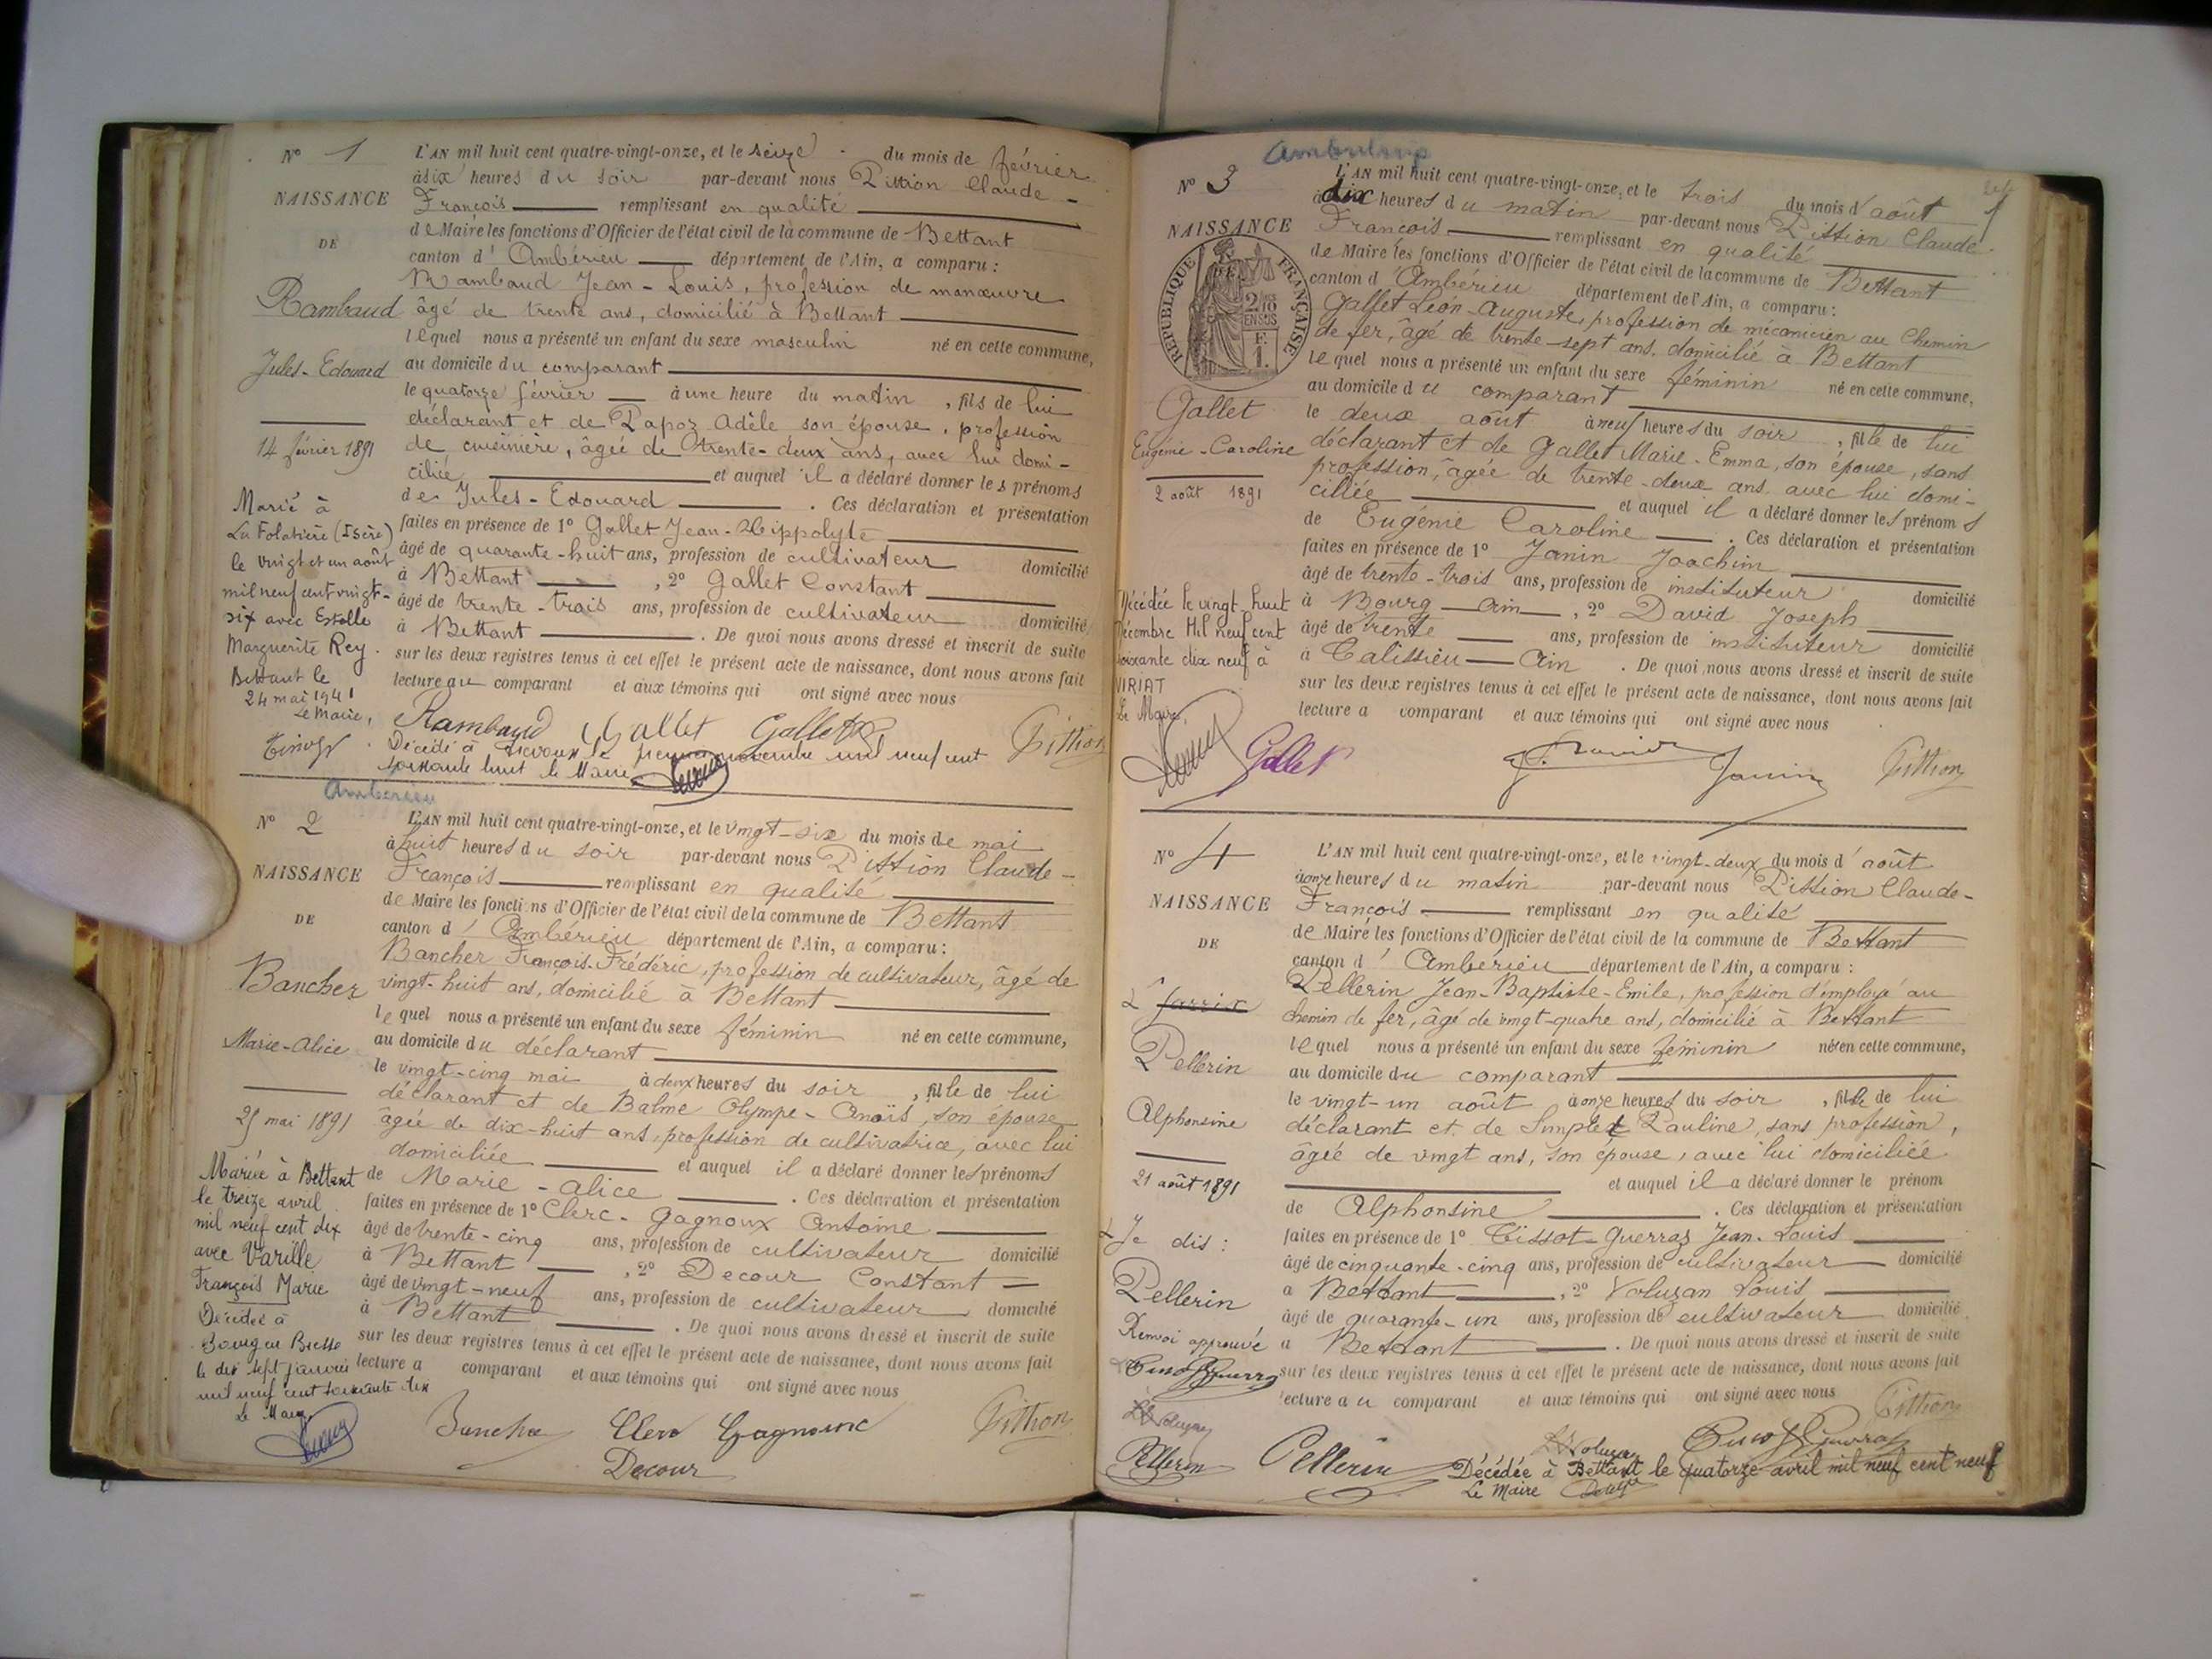 N° 1
NAISSANCE
DE
Rambaud
Jules-Edouard
14 février 1891
Marié à
La Folatière (Isère)
le vingt et un août
mil neuf cent vingt-
six avec Estelle
Marguerite Rey.
Bettant le
24 mai 1941
Le Maire,
L'AN mil huit cent quatre-vingt-onze, et le seize du mois de février
à six heures du soir par-devant nous Pittion Claude-
François remplissant en qualité
de Maire les fonctions d'Officier de l'état civil de la commune de Bettant
canton d'Ambérieu département de l'Ain, a comparu :
Rambaud Jean-Louis, profession de manœuvre
âgé de trente ans, domicilié à Bettant
lequel nous a présenté un enfant du sexe masculin né en cette commune,
au domicile du comparant
le quatorze février à une heure du matin, fils de lui
déclarant et de Papoz Adèle son épouse, profession
de cuisinière, âgée de trente-deux ans, avec lui domi-
ciliée et auquel il a déclaré donner les prénoms
de Jules-Edouard. Ces déclaration et présentation
faites en présence de 1° Gallet Jean-Hippolyte
âgé de quarante-huit ans, profession de cultivateur domicilié
à Bettant, 2° Gallet Constant
âgé de trente-trois ans, profession de cultivateur domicilié
à Bettant. De quoi nous avons dressé et inscrit de suite
sur les deux registres tenus à cet effet le présent acte de naissance, dont nous avons fait
lecture au comparant et aux témoins qui ont signé avec nous
Rambaud Gallet Gallet Pittion
Décédé à Trévoux le premier novembre mil neuf cent
soixante huit le Maire
Amberieu
N° 2
NAISSANCE
DE
Bancher
Marie-Alice
25 mai 1891
Mariée à Bettant
le treize avril
mil neuf cent dix
avec Varille
François Marie
Décédée à
Bourg en Bresse
le dix sept janvier
mil neuf cent soixante dix
Le Maire
L'AN mil huit cent quatre-vingt-onze, et le vingt-six du mois de mai
à huit heures du soir par-devant nous Pittion Claude-
François remplissant en qualité
de Maire les fonctions d'Officier de l'état civil de la commune de Bettant
canton d'Ambérieu département de l'Ain, a comparu :
Bancher François-Frédéric, profession de cultivateur, âgé de
vingt-huit ans, domicilié à Bettant
lequel nous a présenté un enfant du sexe féminin né en cette commune,
au domicile du déclarant
le vingt-cinq mai à deux heures du soir, fille de lui
déclarant et de Balme Olympe-Anaïs, son épouse
âgée de dix-huit ans, profession de cultivatrice, avec lui
domiciliée et auquel il a déclaré donner les prénoms
de Marie-Alice. Ces déclaration et présentation
faites en présence de 1° Clerc-Gagnoux Antoine
âgé de trente-cinq ans, profession de cultivateur domicilié
à Bettant, 2° Decour Constant
âgé de vingt-neuf ans, profession de cultivateur domicilié
à Bettant. De quoi nous avons dressé et inscrit de suite
sur les deux registres tenus à cet effet le présent acte de naissance, dont nous avons fait
lecture a comparant et aux témoins qui ont signé avec nous
Bancher Clerc Gagnoux Pittion
Decour
N° 3
NAISSANCE
RÉPUBLIQUE FRANÇAISE
Gallet
Eugénie-Caroline
2 août 1891
Décédée le vingt-huit
Décembre Mil neuf cent
soixante dix neuf à
VIRIAT
Le Maire,
L'AN mil huit cent quatre-vingt-onze, et le trois du mois d'août
à dix heures du matin par-devant nous Pittion Claude-
François remplissant en qualité
de Maire les fonctions d'Officier de l'état civil de la commune de Bettant
canton d'Ambérieu département de l'Ain, a comparu :
Gallet Léon-Auguste, profession de mécanicien au Chemin
de fer, âgé de trente-sept ans, domicilié à Bettant
lequel nous a présenté un enfant du sexe féminin né en cette commune,
au domicile du comparant
le deux août à neuf heures du soir, fille de lui
déclarant et de Gallet Marie-Emma, son épouse, sans
profession, âgée de trente-deux ans, avec lui domi-
ciliée et auquel il a déclaré donner les prénoms
de Eugénie Caroline. Ces déclaration et présentation
faites en présence de 1° Janin Joachim
âgé de trente-trois ans, profession de instituteur domicilié
à Bourg Ain, 2° David Joseph
âgé de trente ans, profession de instituteur domicilié
à Talissieu Ain. De quoi nous avons dressé et inscrit de suite
sur les deux registres tenus à cet effet le présent acte de naissance, dont nous avons fait
lecture a comparant et aux témoins qui ont signé avec nous
Gallet Janin Pittion
N° 4
NAISSANCE
DE
Pellerin
Alphonsine
21 août 1891
Je dis :
Pellerin
Renvoi approuvé
Pellerin
L'AN mil huit cent quatre-vingt-onze, et le vingt-deux du mois d'août
à onze heures du matin par-devant nous Pittion Claude-
François remplissant en qualité
de Maire les fonctions d'Officier de l'état civil de la commune de Bettant
canton d'Ambérieu département de l'Ain, a comparu :
Pellerin Jean-Baptiste-Emile, profession d'employé au
chemin de fer, âgé de vingt-quatre ans, domicilié à Bettant
lequel nous a présenté un enfant du sexe féminin né en cette commune,
au domicile du comparant
le vingt-un août à onze heures du soir, fille de lui
déclarant et de Simplet Pauline, sans profession,
âgée de vingt ans, son épouse, avec lui domiciliée
et auquel il a déclaré donner le prénom
de Alphonsine. Ces déclaration et présentation
faites en présence de 1° Tissot-Guerraz Jean-Louis
âgé de cinquante-cinq ans, profession de cultivateur domicilié
à Bettant, 2° Voluzan Louis
âgé de quarante-un ans, profession de cultivateur domicilié
à Bettant. De quoi nous avons dressé et inscrit de suite
sur les deux registres tenus à cet effet le présent acte de naissance, dont nous avons fait
lecture au comparant et aux témoins qui ont signé avec nous Pittion
Pellerin Voluzan
Décédée à Bettant le quatorze avril mil neuf cent neuf
Le Maire